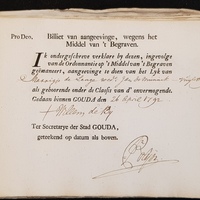 Pro Deo, Billiet van aangeevinge, wegens het
Middel van 't Begraven.
IK ondergeschreve verklare by deezen, ingevolge
van de Ordonnantie op 't Middel van 't Begraven
geëmaneert, aangeevinge te doen van het Lyk van
de Lange
als gehoorende onder de Classis van d' onvermogende.
Gedaan binnen GOUDA den 26 April 1792
Willem de
Ter Secretarye der Stad GOUDA,
geteekend op datum als boven.